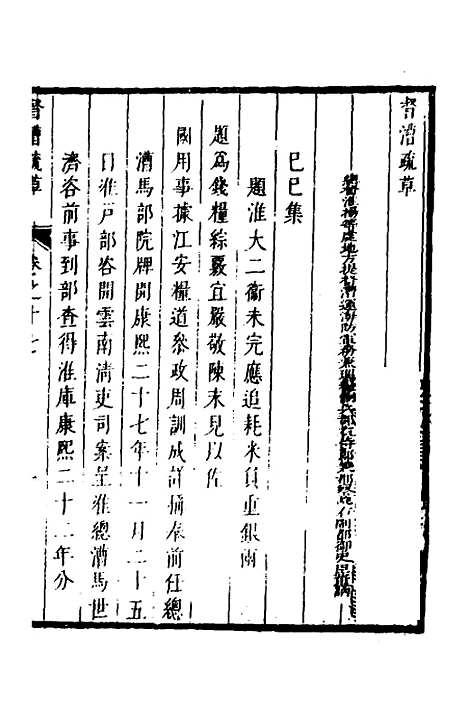 督漕疏草
總督淮揚等處地方提督漕運海防軍務兼理
己巳集
題淮大二衛未完應追耗米負重銀兩
題為錢糧綜覈宜嚴敬陳末見以佐
國用事據江安糧道參政周訓成詳稱奉前任總
漕馬部院牌開康熙二十七年十一月二十五
日准戶部咨開雲南清吏司案呈准總漕馬世
濟咨前事到部查得淮庫康熙二十二年分
督漕疏草 卷之十七 一